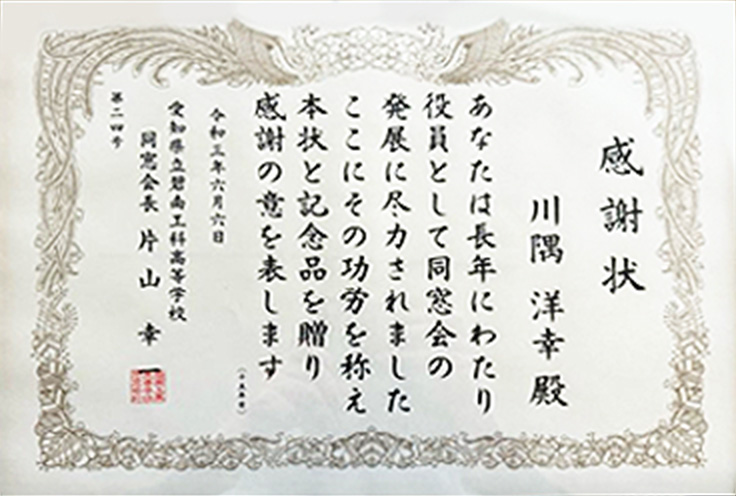 感謝状
川隅 洋幸 殿
あなたは長年にわたり
役員として同窓会の
発展に尽力されました
ここにその功労を称え
本状と記念品を贈り
感謝の意を表します
令和三年六月六日
愛知県立碧南工科高等学校
同窓会長 片山 幸一
第二四号